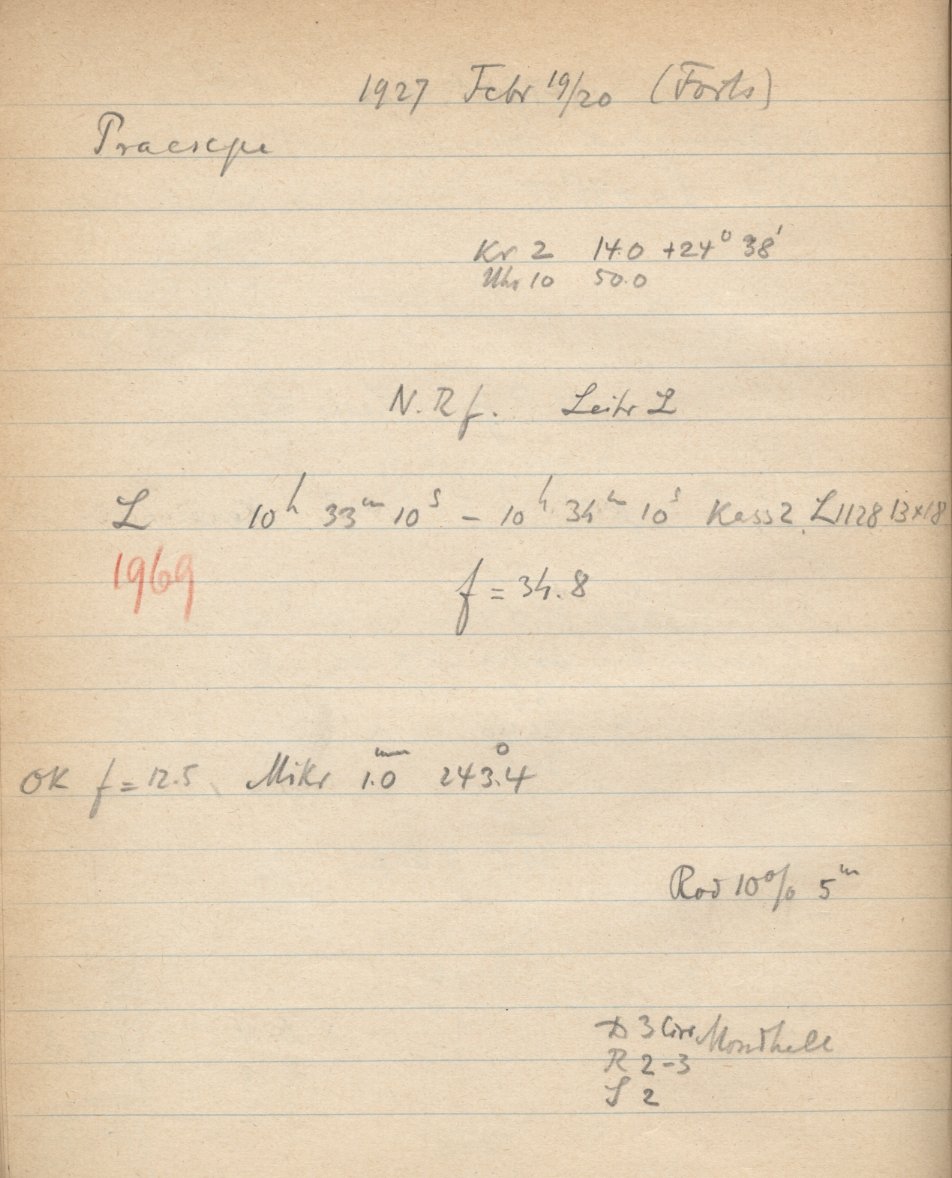 1927 Febr 19/20 (Forts)
Praesepe
Kr 2 14.0 +24° 38'
Uhr 10 50.0
N. R f. Leitr L
L 10ʰ 33ᵐ 10ˢ – 10ʰ 34ᵐ 10ˢ Kass 2 L 1128 13×18
1969
f = 34.8
OK f = 12.5 Mikr 1.0ᵐᵐ 243.4°
Rod 10% 5ᵐ
D 3 Cirr Mondhell
R 2-3
S 2